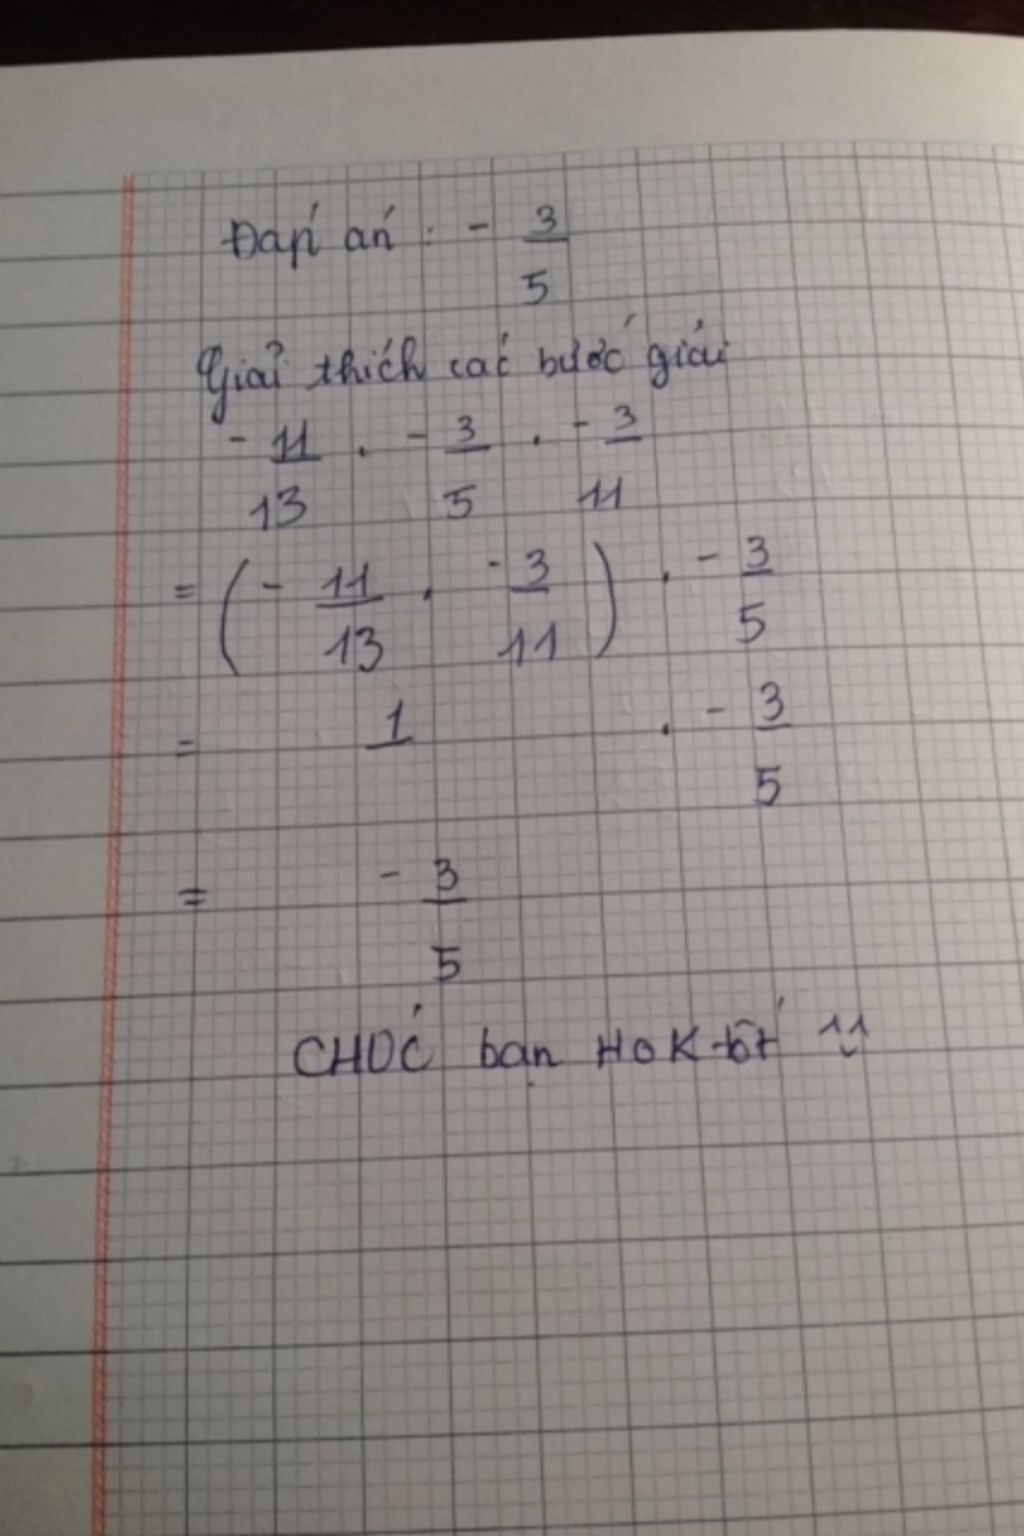 Đáp án : - 3/5
Giải thích các bước giải
- 11/13 . - 3/5 . - 3/11
= ( - 11/13 . - 3/11 ) . - 3/5
= 1 . - 3/5
= - 3/5
CHÚC bạn HOK tốt ^^